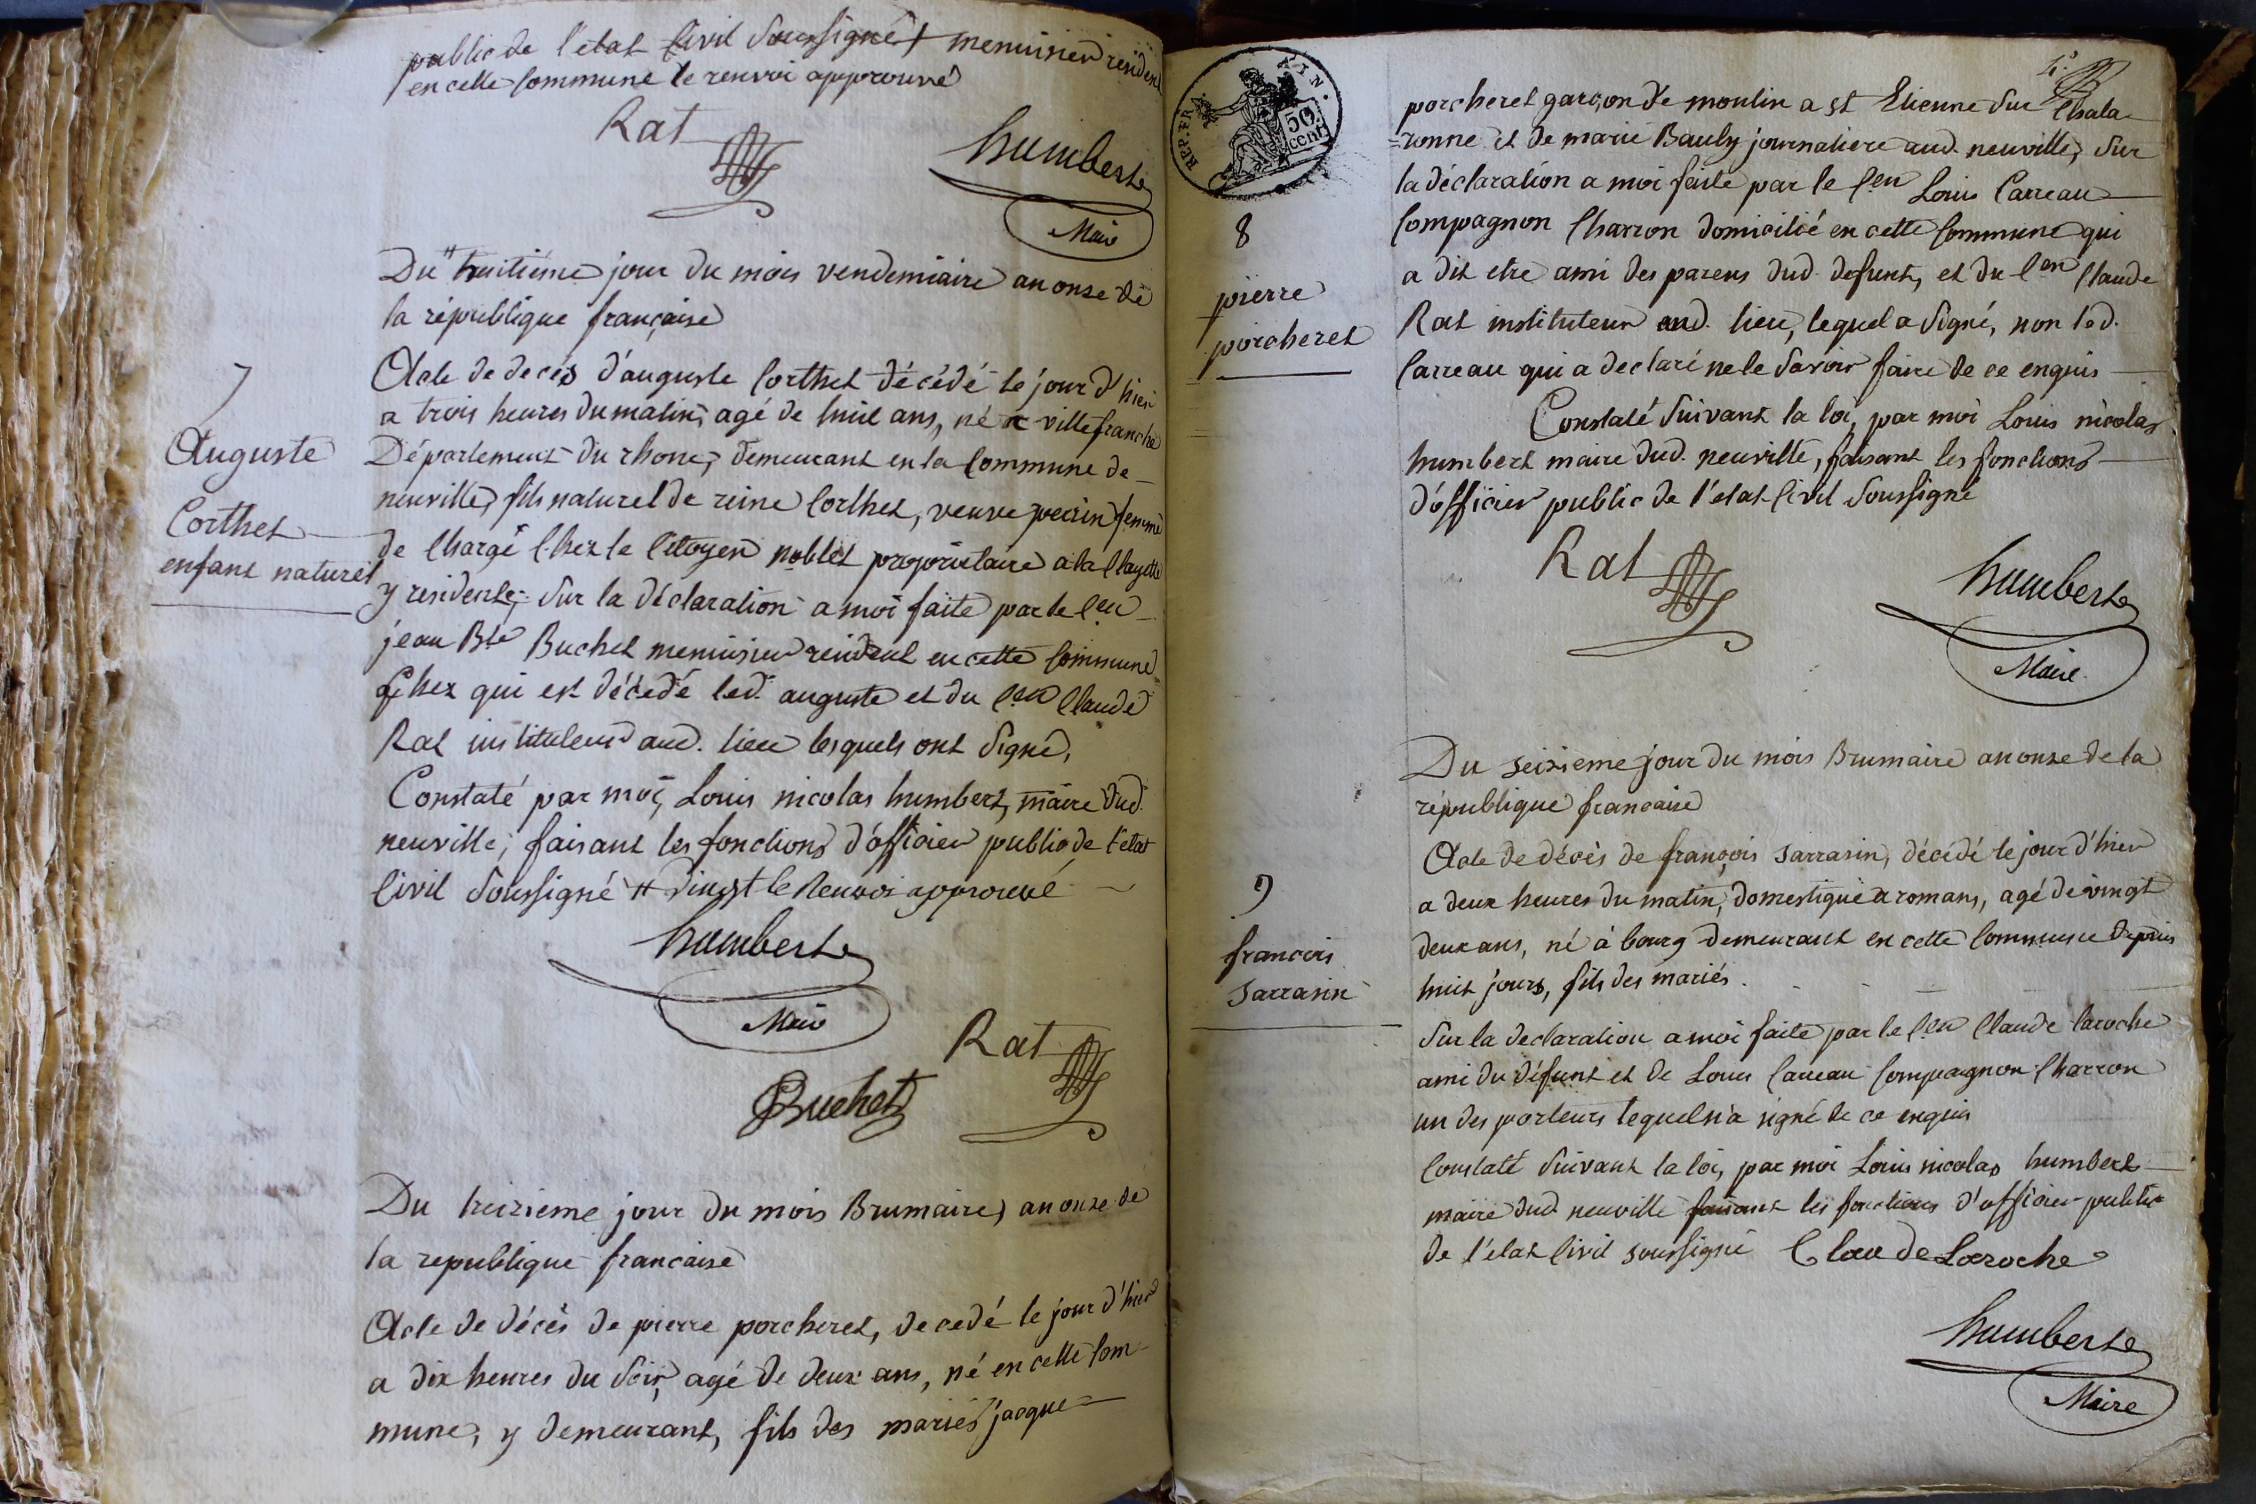 public de l'etat Civil Soussigné + menuisier resident
en cette Commune le renvoi approuvé
Rat
humbert
Maire
Du # huitiéme jour du mois vendemiaire an onze de
la république française
7
Auguste
Corthet
enfant naturel
Acte de decés d'auguste Corthet décédé le jour d'hier
a trois heures du matin, agé de huit ans, né a ville franche
Département du rhone, demeurant en la Commune de
neuville, fils naturel de reine Corthet, veuve perrin femme
de Charge Chez le Citoyen noblet propriétaire a la Clayette
y residente, Sur la déclaration a moi faite par le Cen
jean Bte Buchet menuisier resident en cette Commune
Chez qui est décédé led. auguste et du Cen Claude
Rat instituteur aud. lieu lesquels ont Signé,
Constaté par moi, Louis nicolas humbert, maire dud.
neuville, faisant les fonctions d'officier public de l'etat
Civil Soussigné # vingt le Renvoi approuvé
humbert
Maire
Rat
Buchet
Du treizieme jour du mois Brumaire, an onze de
la republique francaise
Acte de décès de pierre porcheret, decedé le jour d'hier
a dix heures du Soir, agé de deux ans, né en cette Com-
mune, y demeurant, fils des mariés jacque
REP. FRA.
50
cent.
8
pierre
porcheret
porcheret garçon de moulin a st Etienne Sur Chala-
=ronne et de marie Bauly journaliere aud. neuville, Sur
la déclaration a moi faite par le Cen Louis Carreau
Compagnon Charron domicilié en cette Commune qui
a dit etre ami des parens dud. defunt, et du Cen Claude
Rat instituteur aud. lieu, lequel a Signé, non led.
Carreau qui a declaré ne le Savoir faire de ce enquis
Constaté Suivant la loi, par moi Louis nicolas
humbert maire dud. neuville, faisant les fonctions
d'officier public de l'etat Civil Soussigné
Rat
humbert
Maire
Du seizieme jour du mois Brumaire an onze de la
république francaise
9
francois
Sarrasin
Acte de décès de françois Sarrasin, décédé le jour d'hier
a deux heures du matin, domestique a romans, agé de vingt
deux ans, né à bourg demeurant en cette Commune depuis
huit jours, fils des mariés
Sur la declaration a moi faite par le Cen Claude laroche
ami du défunt et de Louis Carreau Compagnon Charron
un des porteurs lequel n'a signé de ce enquis
Constaté Suivant la loi, par moi Louis nicolas humbert
maire dud. neuville faisant les fonctions d'officier public
de l'etat Civil soussigné Claude Laroche
humbert
Maire